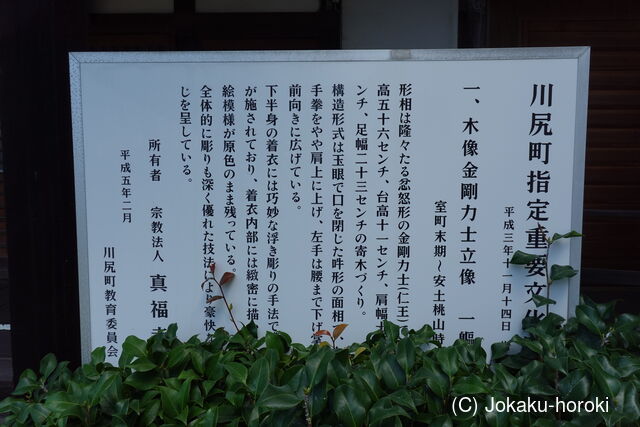 川尻町指定重要文化
平成三年十一月十四
一、木像金剛力士立像　一軀
室町末期～安土桃山時
形相は隆々たる忿怒形の金剛力士(仁王)
高五十六センチ、台高十一センチ、肩幅十
ンチ、足幅二十三センチの寄木づくり。
構造形式は玉眼で口を閉じた吽形の面相、
手拳をやや肩上に上げ、左手は腰まで下げ
前向きに広げている。
下半身の着衣には巧妙な浮き彫りの手法で
が施されており、着衣内部には緻密に描
絵模様が原色のまま残っている。
全体的に彫りも深く優れた技法により豪快
じを呈している。
所有者　宗教法人　真福寺
平成五年二月
川尻町教育委員会
(C) Jokaku-horoki